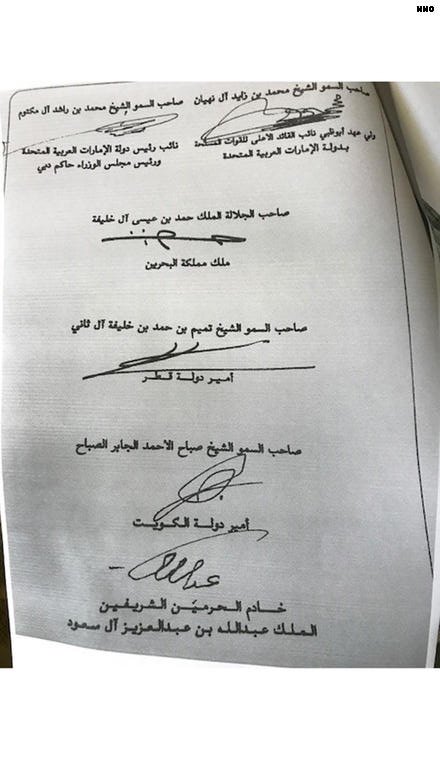 NNO
صاحب السمو الشيخ محمد بن زايد آل نهيان
ولي عهد أبوظبي نائب القائد الأعلى للقوات المسلحة
بدولة الإمارات العربية المتحدة
صاحب السمو الشيخ محمد بن راشد آل مكتوم
نائب رئيس دولة الإمارات العربية المتحدة
ورئيس مجلس الوزراء حاكم دبي
صاحب الجلالة الملك حمد بن عيسى آل خليفة
ملك مملكة البحرين
صاحب السمو الشيخ تميم بن حمد بن خليفة آل ثاني
أمير دولة قطر
صاحب السمو الشيخ صباح الاحمد الجابر الصباح
أمير دولة الكويت
عبدالله
خادم الحرمين الشريفين
الملك عبدالله بن عبدالعزيز آل سعود